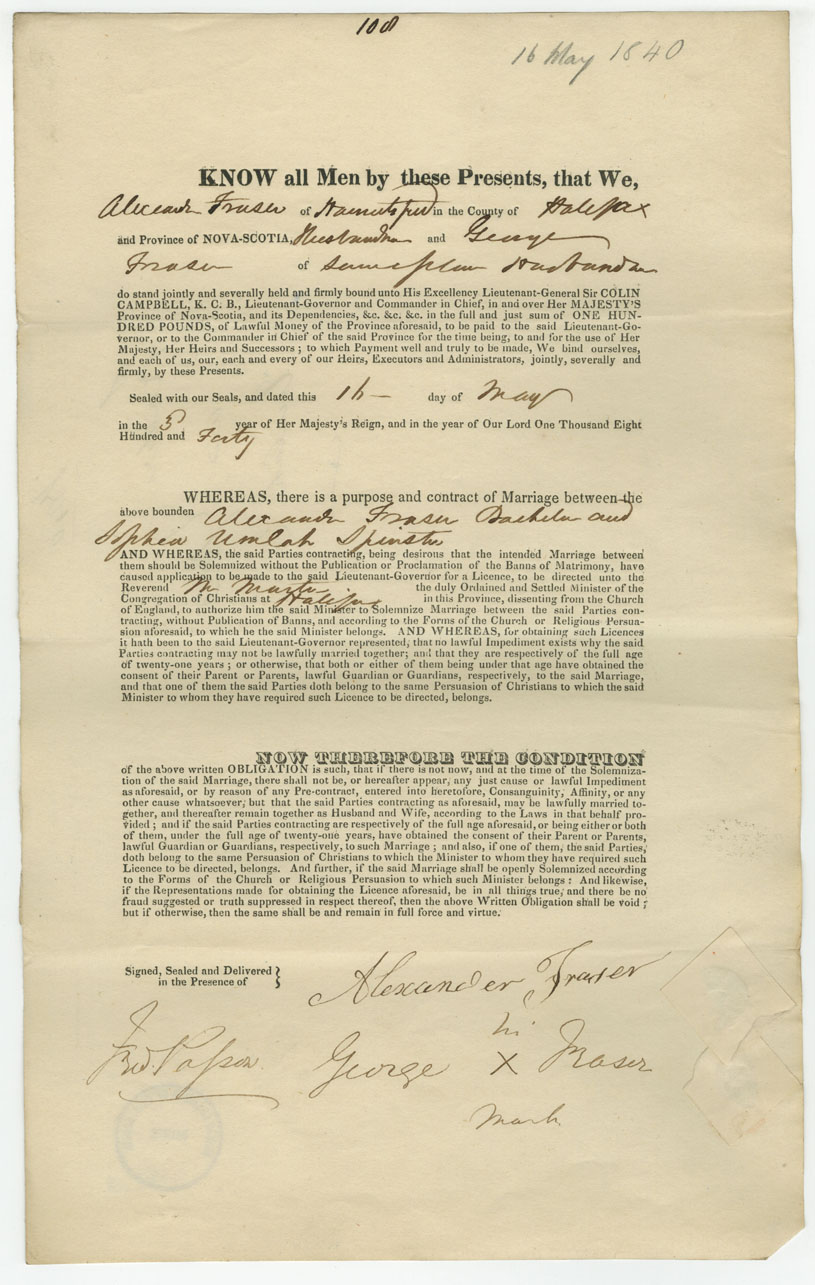 108
16 May 1840
KNOW all Men by these Presents, that We,
Alexander Fraser of Hammonds in the County of Halifax
and Province of NOVA-SCOTIA, Husbandman and George
Fraser of same place Husbandman
do stand jointly and severally held and firmly bound unto His Excellency Lieutenant-General Sir COLIN
CAMPBELL, K. C. B., Lieutenant-Governor and Commander in Chief, in and over Her MAJESTY'S
Province of Nova-Scotia, and its Dependencies, &c. &c. &c. in the full and just sum of ONE HUN-
DRED POUNDS, of Lawful Money of the Province aforesaid, to be paid to the said Lieutenant-Go-
vernor, or to the Commander in Chief of the said Province for the time being, to and for the use of Her
Majesty, Her Heirs and Successors ; to which Payment well and truly to be made, We bind ourselves,
and each of us, our, each and every of our Heirs, Executors and Administrators, jointly, severally and
firmly, by these Presents.
Sealed with our Seals, and dated this 16 — day of May
in the 3 year of Her Majesty's Reign, and in the year of Our Lord One Thousand Eight
Hundred and Forty
WHEREAS, there is a purpose and contract of Marriage between the
above bounden Alexander Fraser Bachelor and
Sophia Umlah Spinster
AND WHEREAS, the said Parties contracting, being desirous that the intended Marriage between
them should be Solemnized without the Publication or Proclamation of the Banns of Matrimony, have
caused application to be made to the said Lieutenant-Governor for a Licence, to be directed unto the
Reverend Mr Martin the duly Ordained and Settled Minister of the
Congregation of Christians at Halifax in this Province, dissenting from the Church
of England, to authorize him the said Minister to Solemnize Marriage between the said Parties con-
tracting, without Publication of Banns, and according to the Forms of the Church or Religious Persua-
sion aforesaid, to which he the said Minister belongs. AND WHEREAS, for obtaining such Licences
it hath been to the said Lieutenant-Governor represented, that no lawful Impediment exists why the said
Parties contracting may not be lawfully married together; and that they are respectively of the full age
of twenty-one years ; or otherwise, that both or either of them being under that age have obtained the
consent of their Parent or Parents, lawful Guardian or Guardians, respectively, to the said Marriage,
and that one of them the said Parties doth belong to the same Persuasion of Christians to which the said
Minister to whom they have required such Licence to be directed, belongs.
NOW THEREFORE THE CONDITION
of the above written OBLIGATION is such, that if there is not now, and at the time of the Solemniza-
tion of the said Marriage, there shall not be, or hereafter appear, any just cause or lawful Impediment
as aforesaid, or by reason of any Pre-contract, entered into heretofore, Consanguinity, Affinity, or any
other cause whatsoever, but that the said Parties contracting as aforesaid, may be lawfully married to-
gether, and thereafter remain together as Husband and Wife, according to the Laws in that behalf pro-
vided ; and if the said Parties contracting are respectively of the full age aforesaid, or being either or both
of them, under the full age of twenty-one years, have obtained the consent of their Parent or Parents,
lawful Guardian or Guardians, respectively, to such Marriage ; and also, if one of them, the said Parties,
doth belong to the same Persuasion of Christians to which the Minister to whom they have required such
Licence to be directed, belongs. And further, if the said Marriage shall be openly Solemnized according
to the Forms of the Church or Religious Persuasion to which such Minister belongs : And likewise,
if the Representations made for obtaining the Licence aforesaid, be in all things true, and there be no
fraud suggested or truth suppressed in respect thereof, then the above Written Obligation shall be void ;
but if otherwise, then the same shall be and remain in full force and virtue.
Signed, Sealed and Delivered
in the Presence of
Alexander Fraser
his
George X Fraser
mark